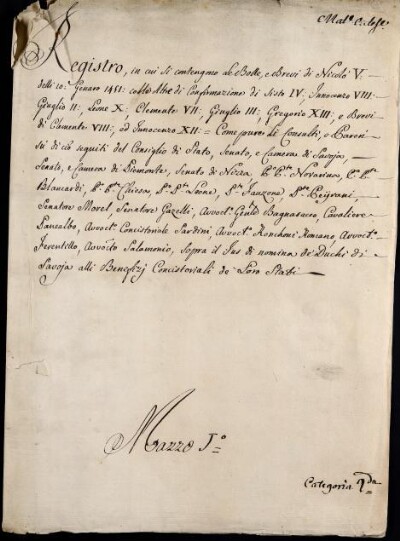 Mat.e Eccles.e
Registro, in cui si contengono le Bolle, e Brevi di Nicolò V.
delli 10: Genaro 1451: colle Altre di Confirmazione di Sisto IV; Innocenzo VIII;
Giuglio II; Leone X; Clemente VII; Giuglio III; Gregorio XIII; e Brevi
di Clemente VIII; ed Innocenzo XII: = Come pure li Consulti, e Pareri
si di ciò seguiti del Consiglio di Stato, Senato, e Camera di Savoja,
Senato, e Camera di Piemonte, Senato di Nizza,
Blancardi, Chiesa, Leone,
Senatore Morel, Senatore Gazelli, Avvoct. Gen.le Bagnasacco, Cavaliere
Avvoct. Concistoriale Sardini, Avvoct. Ronchoni Romano, Avvoct.
Avvocto Salomonio, sopra il Jus di nomina de' Duchi di
Savoja alli Benefizj Concistoriali de' Loro Stati
Mazzo I.o
Categoria